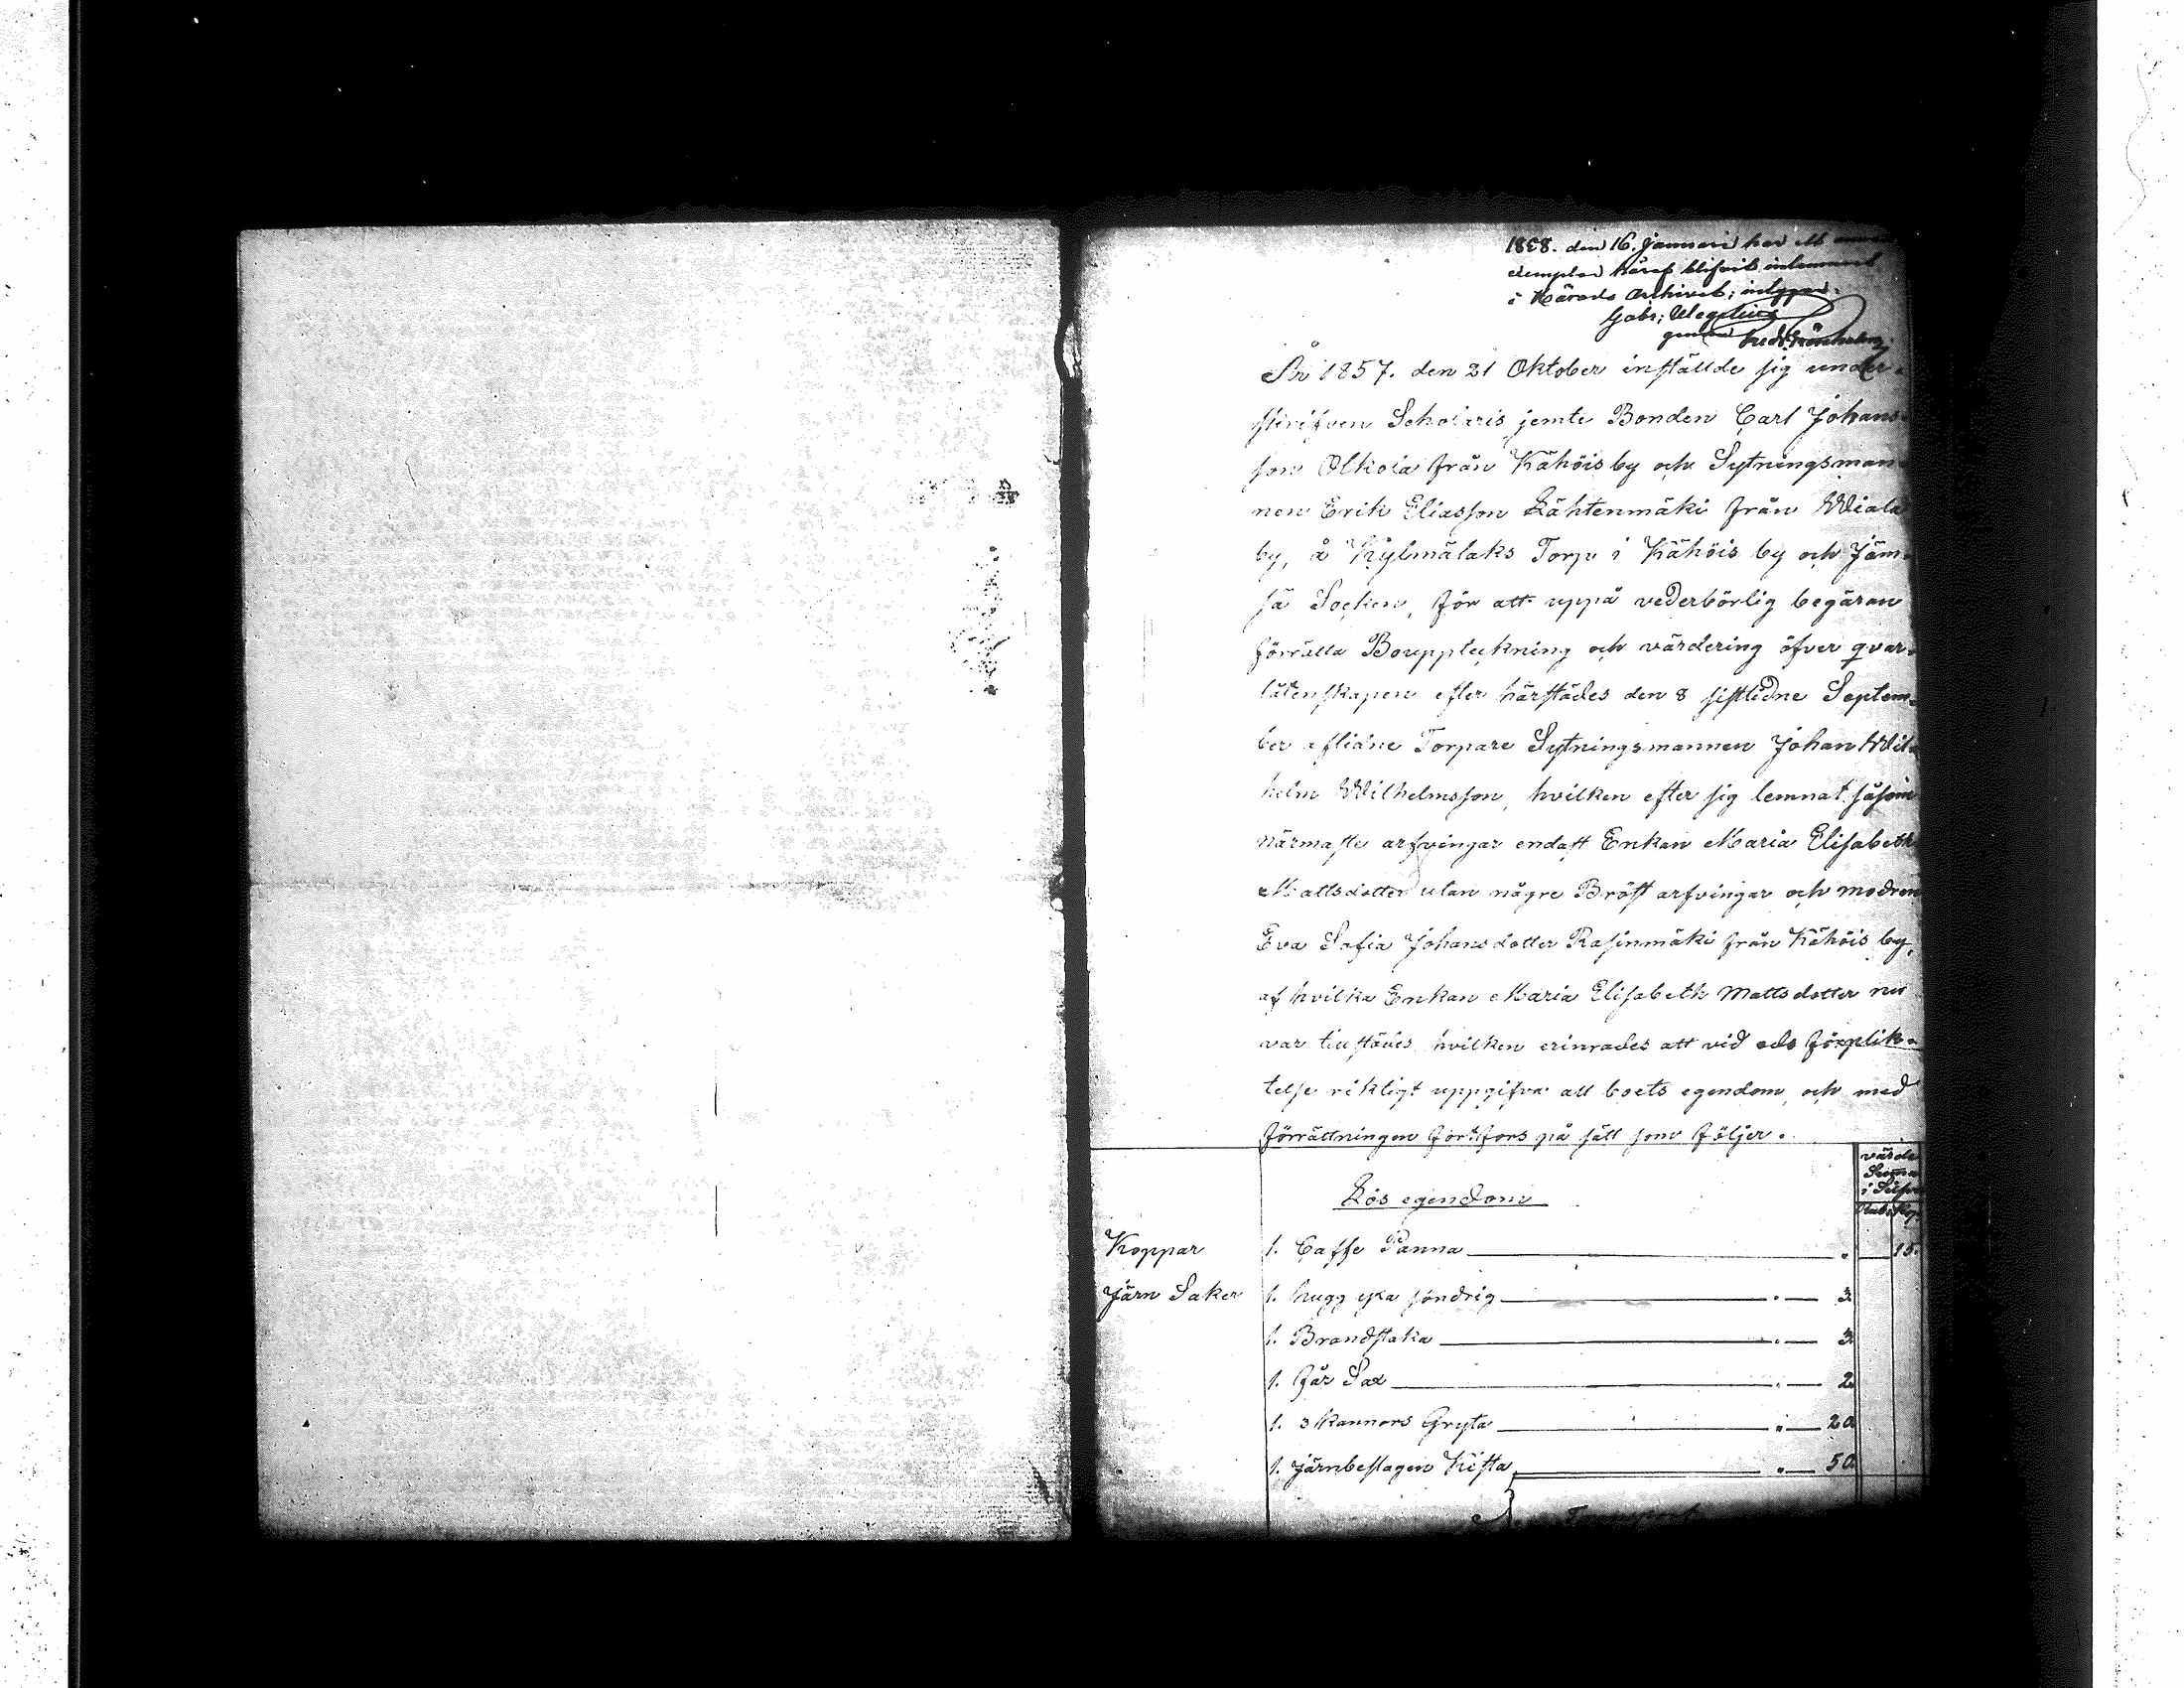 1858. den 16. Januari har ett annat
exemplar häraf blifvit inlemnat
i Härads Archivet; intygar:
Gabr: Wegelius
genom
År 1857. den 21 Oktober inställde sig under-
skrifven Scholaris jemte Bonden Carl Johans-
son Olkola från Kähöis by och Sytningsman-
nen Erik Eliasson Lähtenmäki från Wiala
by, å Kylmälaks Torp i Kähöis by och Jäm-
sä Socken, för att uppå vederbörlig begäran
förrätta Bouppteckning och värdering öfver qvar-
låtenskapen efter härstädes den 8 sistlidne Septem-
ber aflidne Torpare Sytningsmannen Johan Wil-
helm Wilhelmsson, hvilken efter sig lemnat såsom
närmaste arfvingar endast Enkan Maria Elisabeth
Mattsdotter utan någre Bröst arfvingar och modren
Eva Sofia Johansdotter Rasinmäki från Kähöis by,
af hvilka Enkan Maria Elisabeth Mattsdotter nu
var tillstädes, hvilken erinrades att vid eds förplik-
telse riktigt uppgifva all boets egendom, och med
förrättningen fortfors på sätt som följer.
värde
Summa
i Silfver
Rub. Kop.
Lös egendom
Koppar 1. Caffe Panna 15.
Järn Saker 1. hugg yxa söndrig 3.
1. Brandstaka 3.
1. får Sax 2.
1. 3 kannors Gryta 20.
1. järnbeslagen Kista 50.
Transport